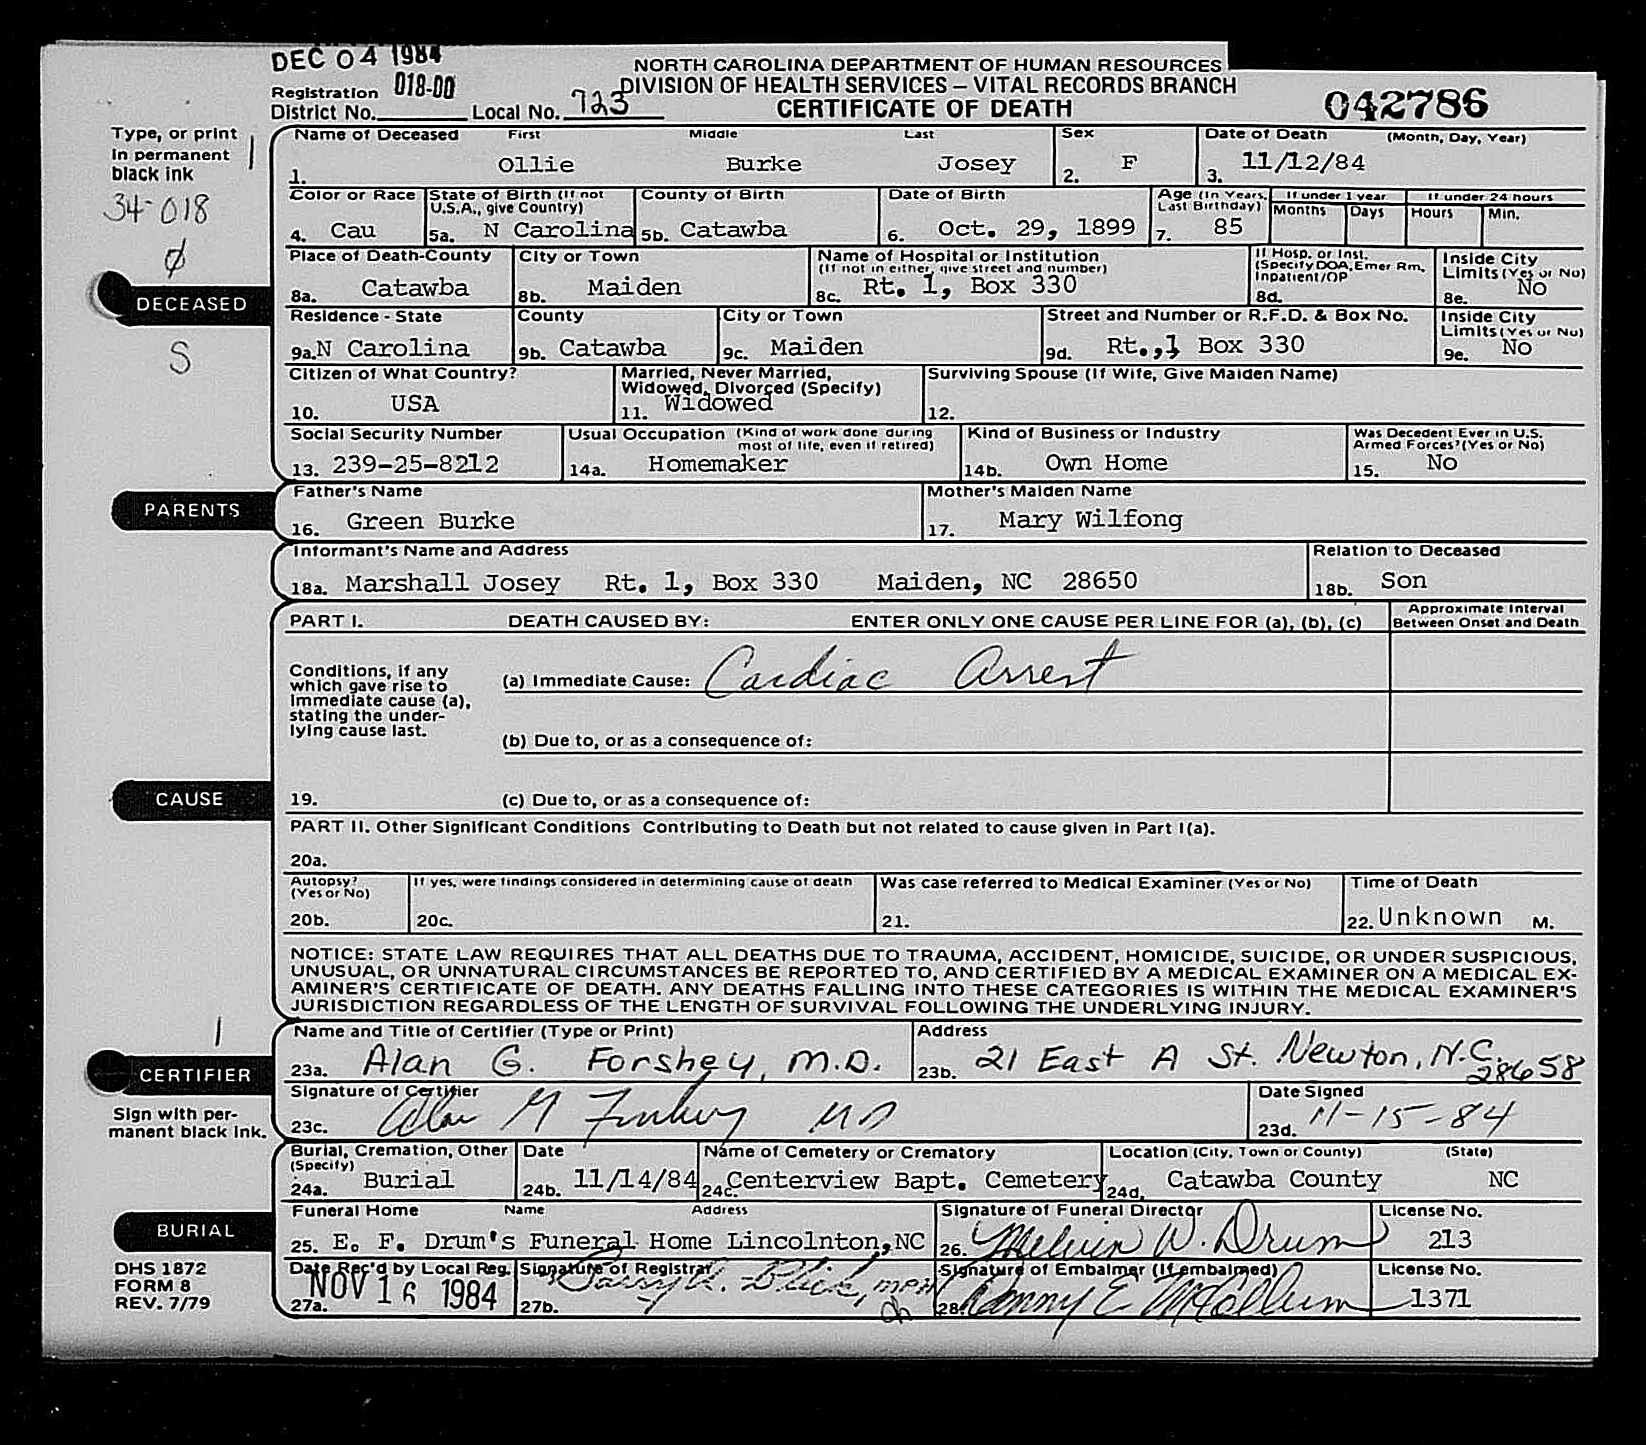 DEC 04 1984
NORTH CAROLINA DEPARTMENT OF HUMAN RESOURCES
DIVISION OF HEALTH SERVICES – VITAL RECORDS BRANCH
CERTIFICATE OF DEATH
Registration District No. 018-00 Local No. 723
042786
Type, or print in permanent black ink
34-018
DECEASED
S
Name of Deceased First Middle Last
1. Ollie Burke Josey
Sex
2. F
Date of Death (Month, Day, Year)
3. 11/12/84
Color or Race
4. Cau
State of Birth (If not U.S.A., give Country)
5a. N Carolina
County of Birth
5b. Catawba
Date of Birth
6. Oct. 29, 1899
Age (In Years, Last Birthday)
7. 85
If under 1 year
Months Days
If under 24 hours
Hours Min.
Place of Death-County
8a. Catawba
City or Town
8b. Maiden
Name of Hospital or Institution
(If not in either, give street and number)
8c. Rt. 1, Box 330
If Hosp. or Inst. (Specify DOA, Emer Rm, Inpatient/OP
8d.
Inside City Limits (Yes or No)
8e. No
Residence - State
9a. N Carolina
County
9b. Catawba
City or Town
9c. Maiden
Street and Number or R.F.D. & Box No.
9d. Rt.,1 Box 330
Inside City Limits (Yes or No)
9e. No
Citizen of What Country?
10. USA
Married, Never Married, Widowed, Divorced (Specify)
11. Widowed
Surviving Spouse (If Wife, Give Maiden Name)
12.
Social Security Number
13. 239-25-8212
Usual Occupation (Kind of work done during most of life, even if retired)
14a. Homemaker
Kind of Business or Industry
14b. Own Home
Was Decedent Ever in U.S. Armed Forces? (Yes or No)
15. No
PARENTS
Father's Name
16. Green Burke
Mother's Maiden Name
17. Mary Wilfong
Informant's Name and Address
18a. Marshall Josey Rt. 1, Box 330 Maiden, NC 28650
Relation to Deceased
18b. Son
PART I. DEATH CAUSED BY: ENTER ONLY ONE CAUSE PER LINE FOR (a), (b), (c)
Approximate Interval Between Onset and Death
Conditions, if any
which gave rise to
immediate cause (a),
stating the under-
lying cause last.
(a) Immediate Cause: Cardiac Arrest
(b) Due to, or as a consequence of:
CAUSE
19. (c) Due to, or as a consequence of:
PART II. Other Significant Conditions Contributing to Death but not related to cause given in Part I(a).
20a.
Autopsy? (Yes or No)
20b.
If yes, were findings considered in determining cause of death
20c.
Was case referred to Medical Examiner (Yes or No)
21.
Time of Death
22. Unknown M.
NOTICE: STATE LAW REQUIRES THAT ALL DEATHS DUE TO TRAUMA, ACCIDENT, HOMICIDE, SUICIDE, OR UNDER SUSPICIOUS,
UNUSUAL, OR UNNATURAL CIRCUMSTANCES BE REPORTED TO, AND CERTIFIED BY A MEDICAL EXAMINER ON A MEDICAL EX-
AMINER'S CERTIFICATE OF DEATH. ANY DEATHS FALLING INTO THESE CATEGORIES IS WITHIN THE MEDICAL EXAMINER'S
JURISDICTION REGARDLESS OF THE LENGTH OF SURVIVAL FOLLOWING THE UNDERLYING INJURY.
CERTIFIER
Sign with per-
manent black ink.
Name and Title of Certifier (Type or Print)
23a. Alan G. Forshey, M.D.
Address
23b. 21 East A St. Newton, N.C. 28658
Signature of Certifier
23c.
Date Signed
23d. 11-15-84
Burial, Cremation, Other (Specify)
24a. Burial
Date
24b. 11/14/84
Name of Cemetery or Crematory
24c. Centerview Bapt. Cemetery
Location (City, Town or County) (State)
24d. Catawba County NC
BURIAL
Funeral Home Name Address
25. E. F. Drum's Funeral Home Lincolnton, NC
Signature of Funeral Director
26. Melvin W. Drum
License No.
213
DHS 1872
FORM 8
REV. 7/79
Date Rec'd by Local Reg.
27a. NOV 16 1984
Signature of Registrar
27b.
Signature of Embalmer (If embalmed)
28.
License No.
1371